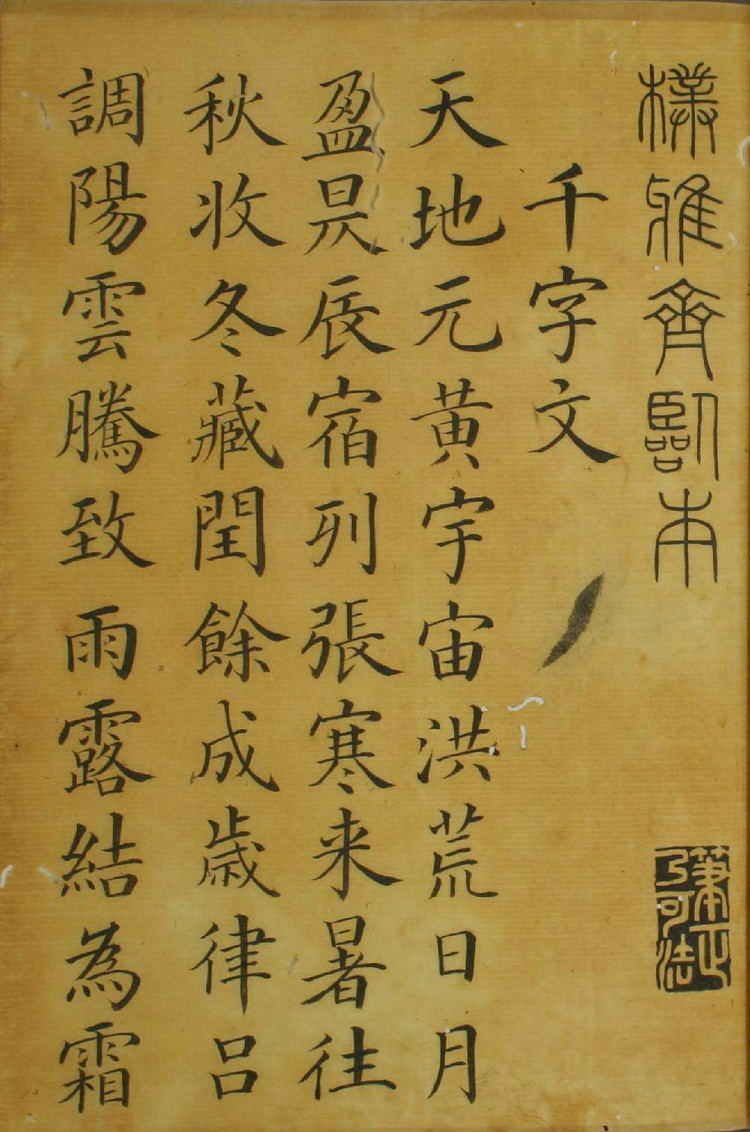 樸雅齊臨本
筆正
乃可法
千字文
天地元黄宇宙洪荒日月
盈昃辰宿列張寒来暑往
秋收冬藏閏餘成歳律吕
調陽雲騰致雨露結為霜